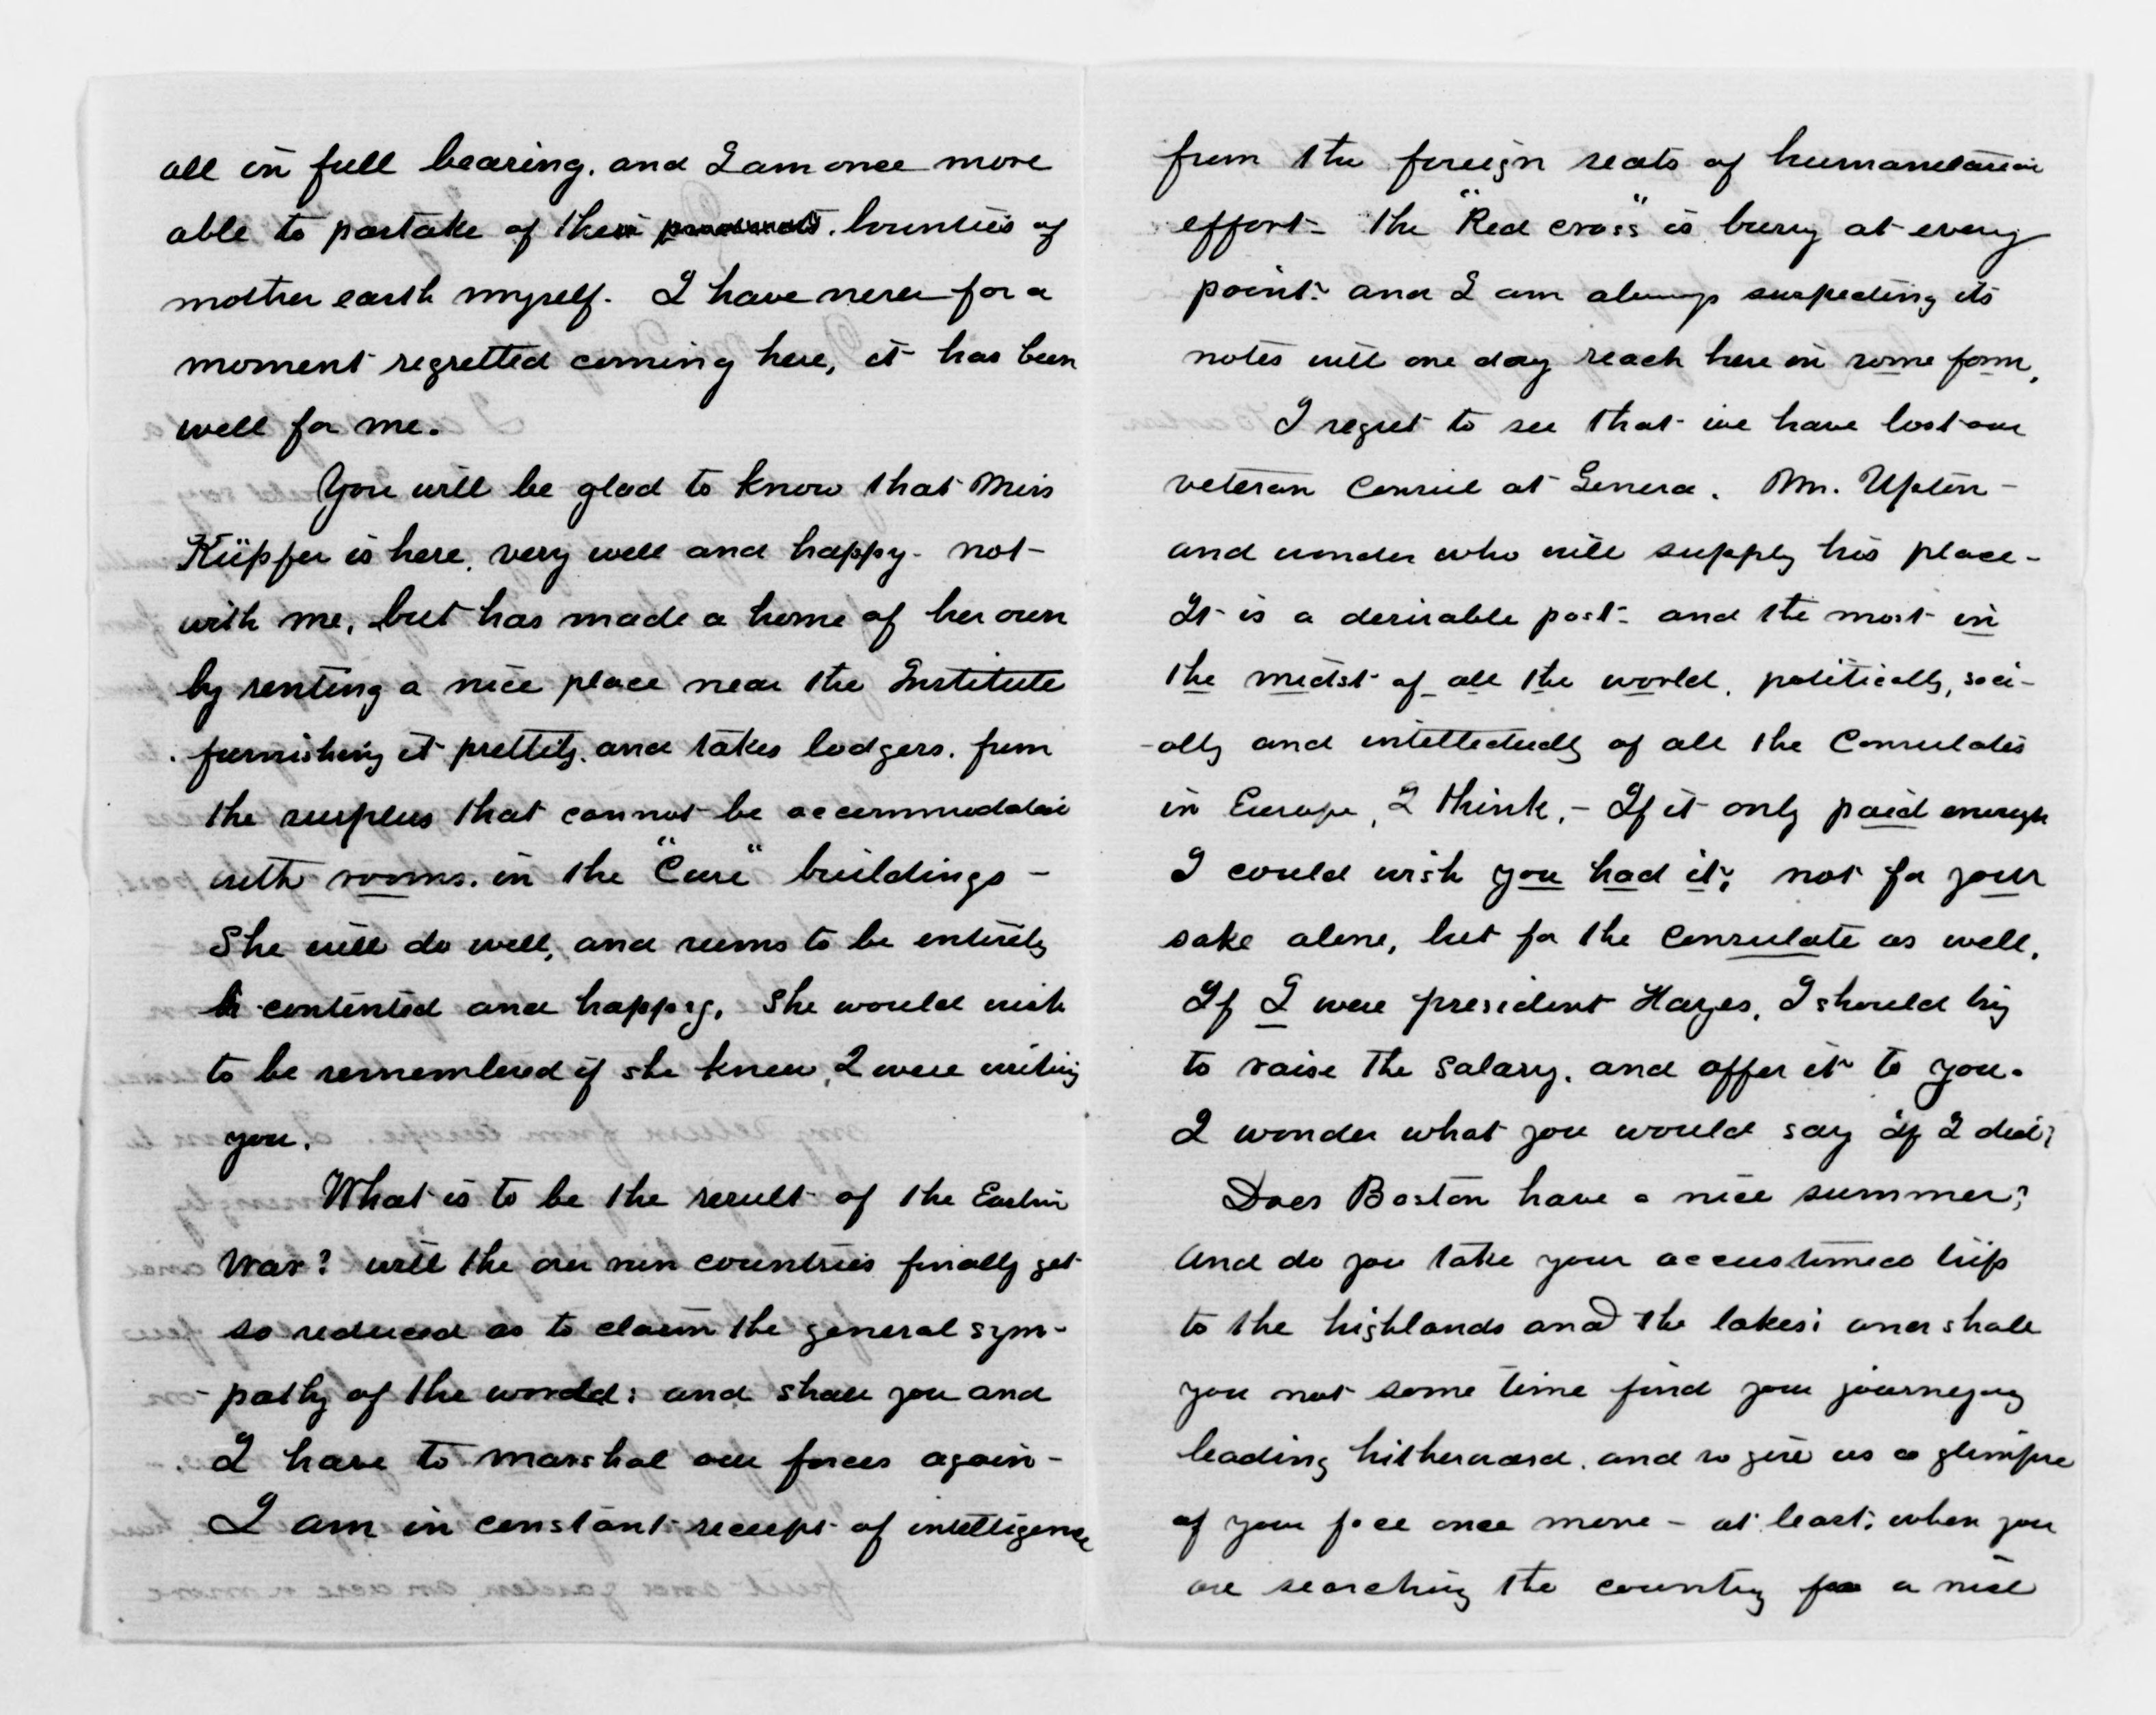 all in full bearing. and I am once more
able to partake of these bounties of
mother earth myself. I have never for a
moment regretted coming here, it has been
well for me.
You will be glad to know that Miss
Küpfer is here, very well and happy - not -
with me, but has made a home of her own
by renting a nice place near the Institute
furnishing it prettily. and takes lodgers. from
the surplus that cannot be accommodated
with rooms. in the "Cure" buildings -
She will do well, and seems to be entirely
contented and happy. She would wish
to be remembered if she knew, I were writing
you.
What is to be the result of the Eastern
War? will the countries finally get
so reduced as to claim the general sym-
- pathy of the world: and shall you and
I have to marshal our forces again -
I am in constant receipt of intelligence
from the foreign seats of humanitarian
effort - The "Red cross" is busy at every
point. and I am always suspecting its
notes will one day reach here in some form.
I regret to see that we have lost our
veteran Consul at Geneva. Mr. Upton -
and wonder who will supply his place -
It is a desirable post - and the most in
the midst of all the world, politically, soci-
- ally and intellectually of all the Consulates
in Europe, I think, - If it only paid enough
I could wish you had it; not for your
sake alone, but for the Consulate as well.
If I were president Hayes, I should try
to raise the Salary. and offer it to you.
I wonder what you would say if I did?
Does Boston have a nice summer?
And do you take your accustomed trip
to the highlands and the lakes; and shall
you not some time find your journeying
leading hitherward. and so give us a glimpse
of your face once more - at least: when you
are searching the country for a nice